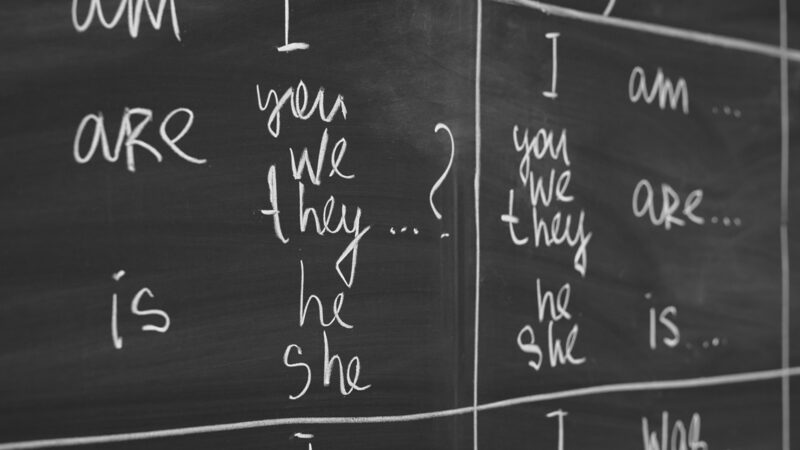 am I
are you
we
they ...?
is he
she
I am ...
you
we are...
they
he
she is...
I was